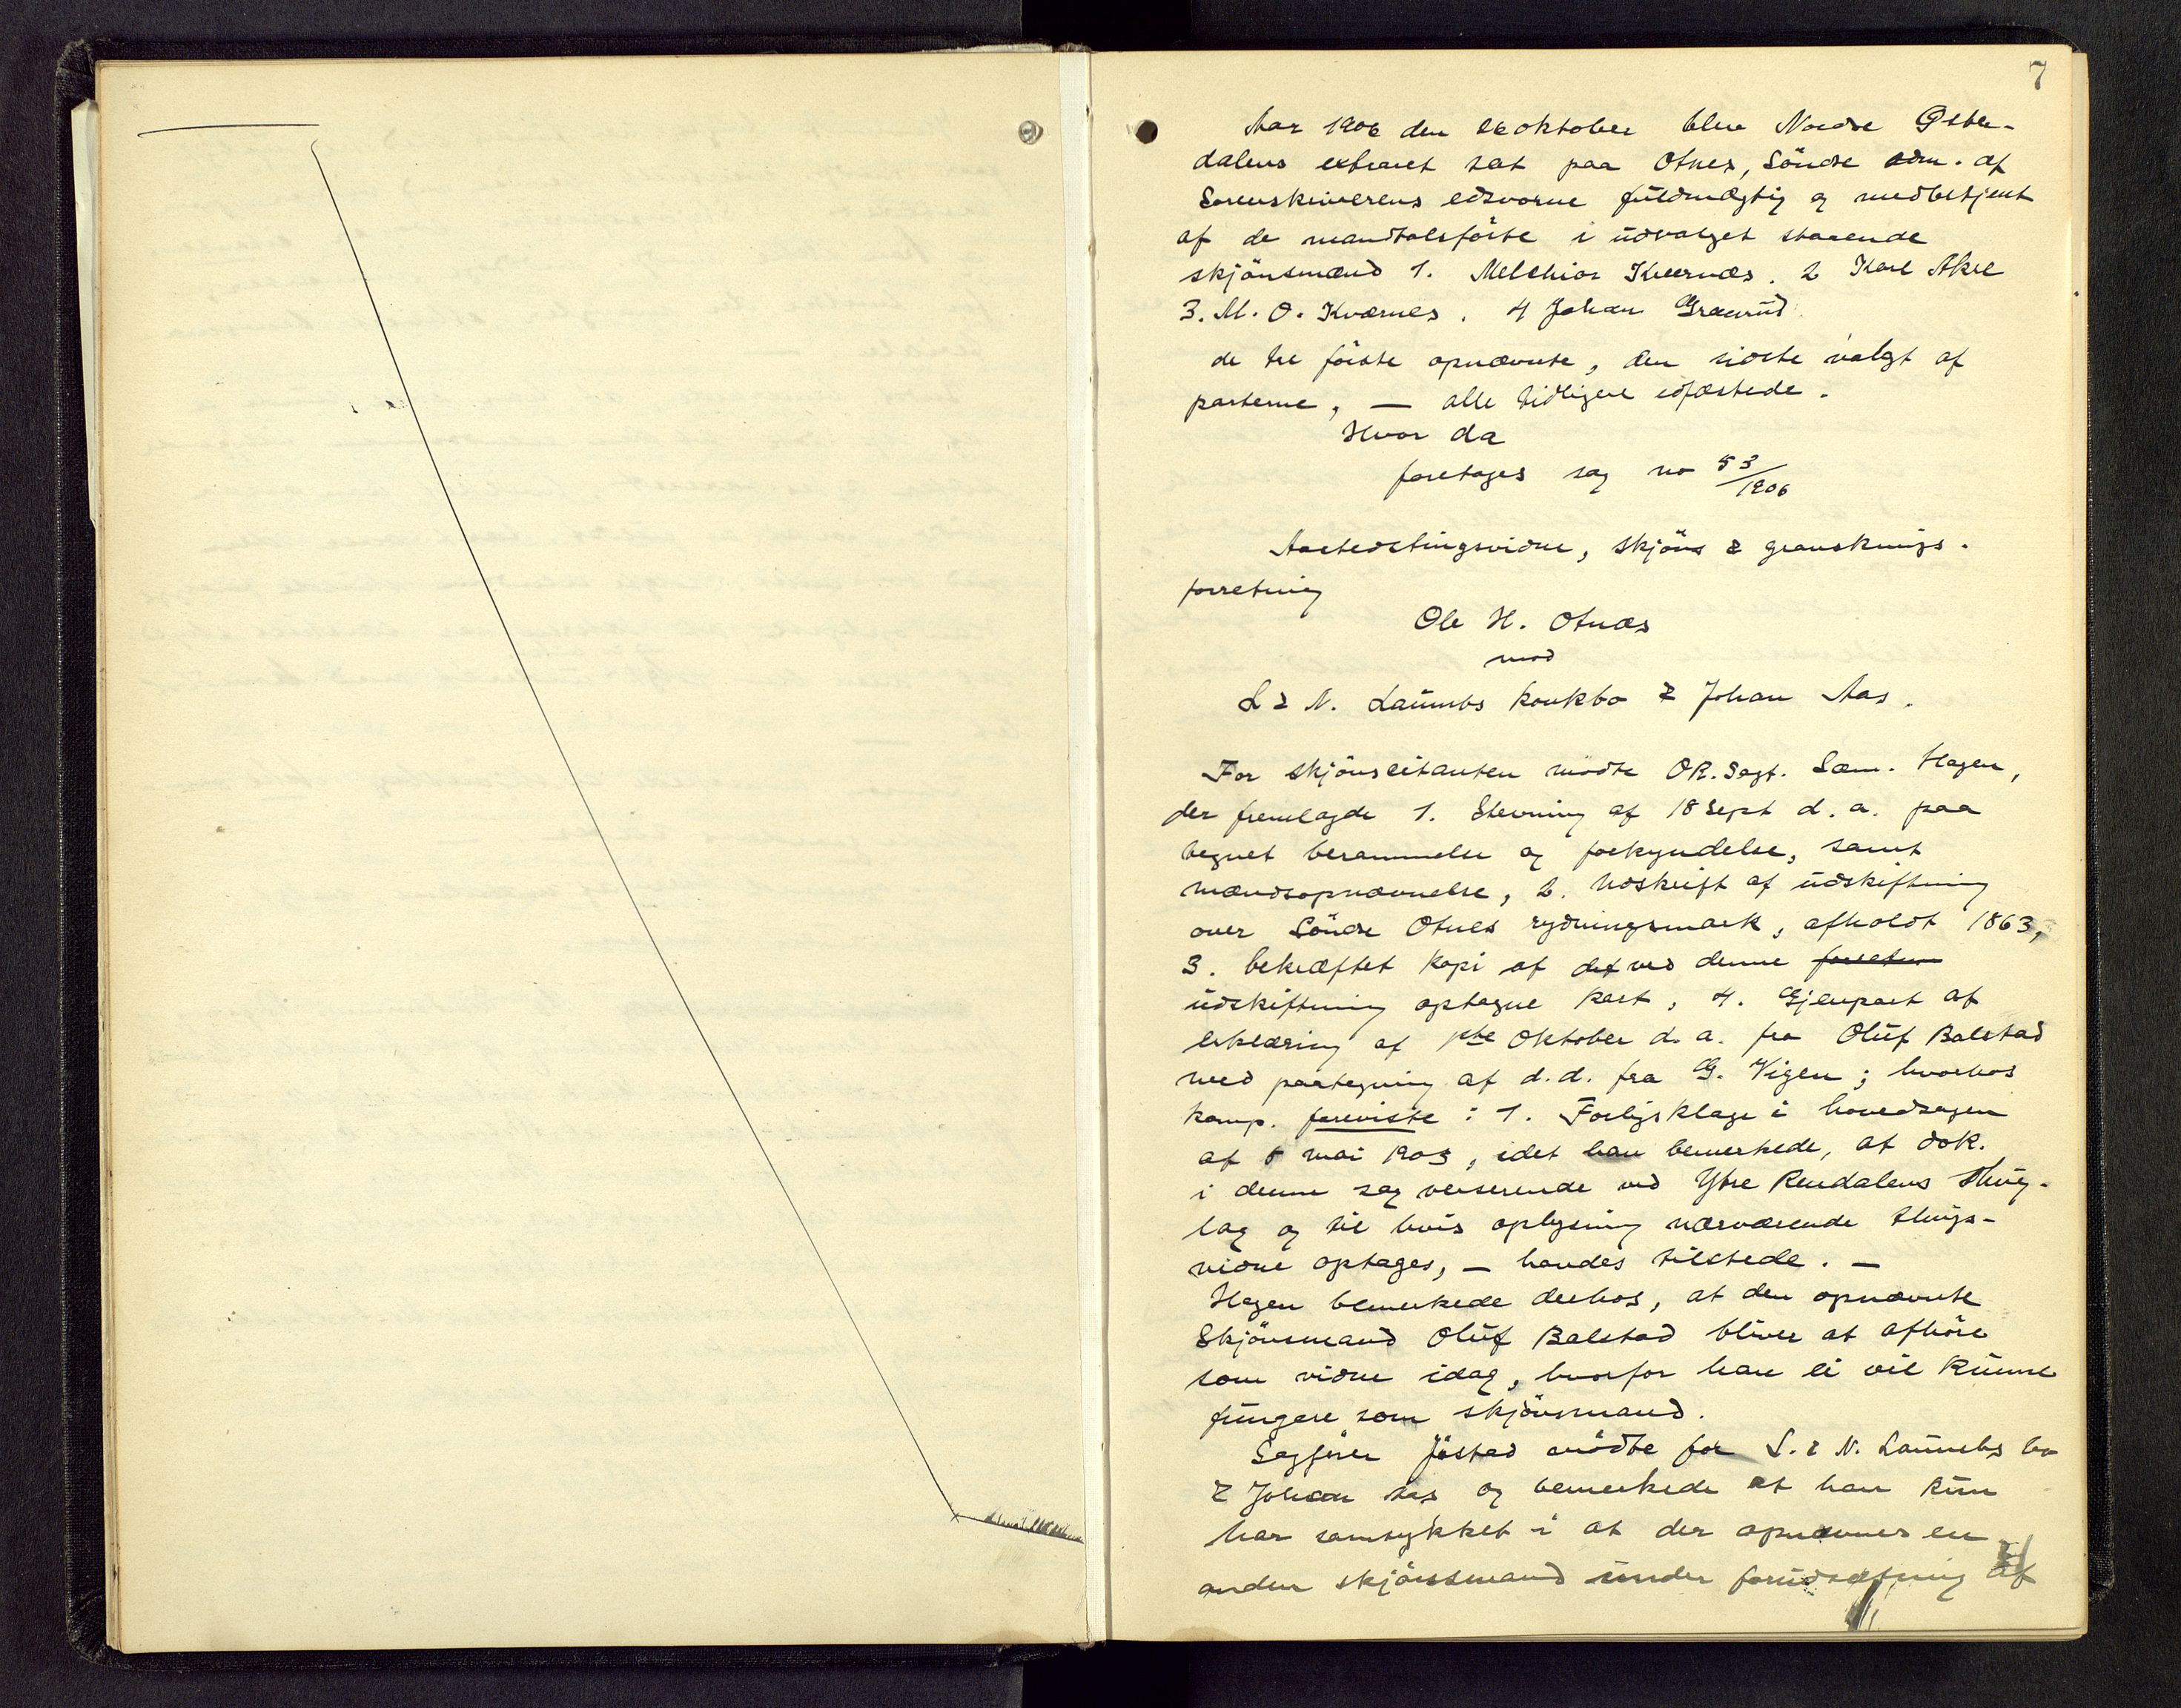 7
Aar 1906 den oktober blev Nordre Øster-
dalens extraret sat paa Otnes, Söndre adm. af
Sorenskriverens edsvorne füldmægtig og medbetjent
af de mandtalsförte i üdvalget staaende
skjönsmænd 1. Melchior Kværnæs. 2 Karl Akre
3. M. O. Kværnes. 4 Johan Granrüd
de tre förste opnævnte, den sidste valgt af
parterne, — alle tidligere edfæstede.
Hvor da
foretages sag no 53/1906
Aastedstingsvidne, skjöns & gransknings-
forretning
Ole H. Otnæs
mod
L & N. Laümbs konkbo & Johan Aas.
For skjönscitanten mödte OR.Sagf. Sæm. Hagen,
der fremlagde 1. Stevning af 18 Sept d. a. paa
tegnet berammelse og forkyndelse, samt
mændsopnævnelse, 2. Udskrift af üdskiftning
over Söndre Otnes rydningsmark, afholdt 1863,
3. bekræftet kopi af det ved denne forretn
üdskiftning optagne kart, 4. Gjenpart af
erklæring af 1ste Oktober d. a. fra Olüf Balstad
med paategning af d.d. fra G. Vigen; hvorhos
komp. foreviste: 1. Forligsklage i hovedsagen
af 5 mai 1903, idet han bemerkede, at dok.
i denne sag verserende ved Ytre Rendalens thing-
lag og til hvis oplysning nærværende things-
vidne optages, — havdes tilstede. —
Hagen bemerkede derhos, at den opnævnte
Skjönsmand Olüf Balstad bliver at afhöre
som vidne idag, hvorfor han ei vil künne
füngere som skjönsmand.
Sagförer Jöstad mödte for L. & N. Laümbs bo
& Johan Aas og bemerkede at han kün
har samtykket i at der opnævnes en
anden skjönsmand ünder forüdsætning af